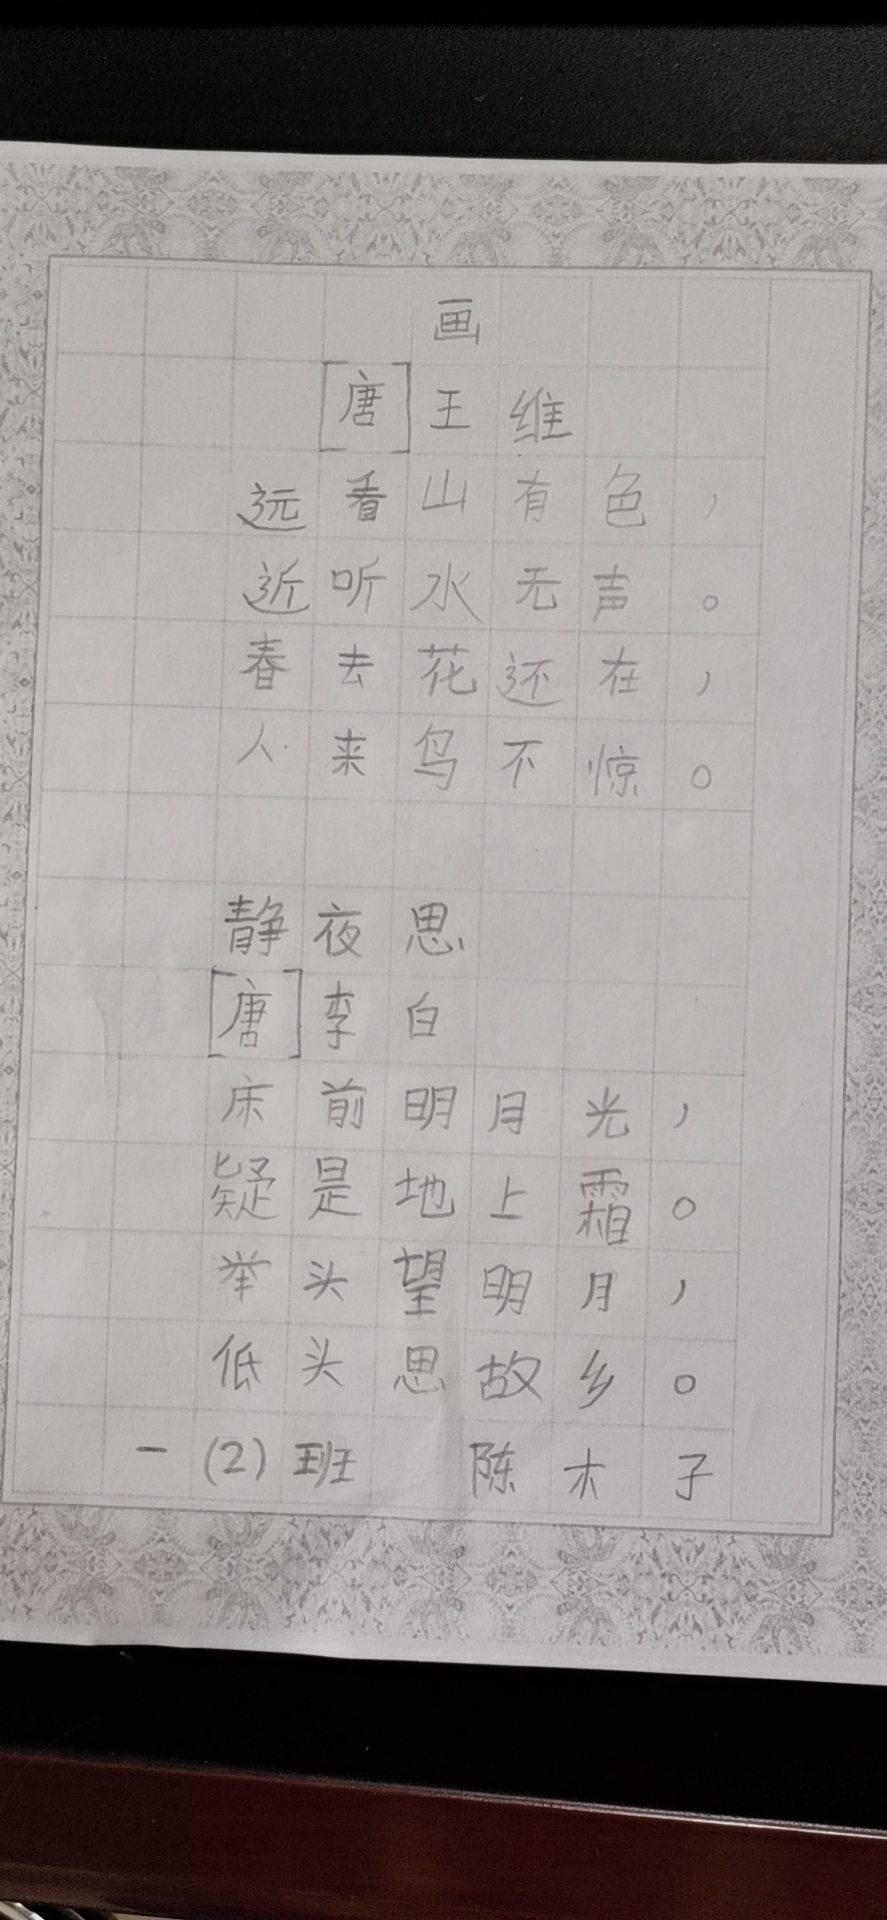 画
[唐]王维
远看山有色，
近听水无声。
春去花还在，
人来鸟不惊。
静夜思
[唐]李白
床前明月光，
疑是地上霜。
举头望明月，
低头思故乡。
一(2)班 陈木子